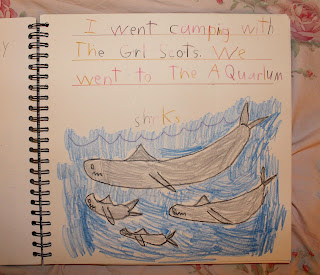 I went cumpig with
The Grl Scots. We
went to The AQuarIum
sharKs